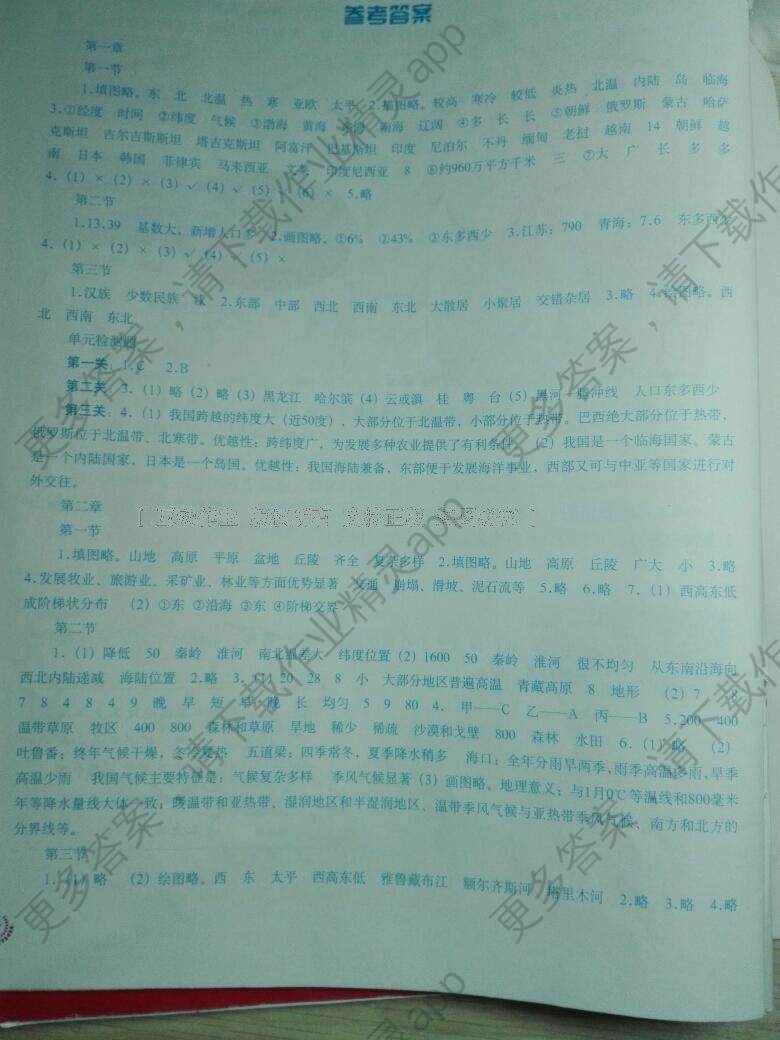 参考答案
第一章
第一节
1.填图略。东 北 北温 热 寒 亚欧 太平 2.填图略。较高 寒冷 较低 炎热 北温 内陆 岛 临海
3.①经度 时间 ②纬度 气候 ③渤海 黄海 东海 南海 辽阔 ④多 长 长 ⑤朝鲜 俄罗斯 蒙古 哈萨
克斯坦 吉尔吉斯斯坦 塔吉克斯坦 阿富汗 巴基斯坦 印度 尼泊尔 不丹 缅甸 老挝 越南 14 朝鲜 越
南 日本 韩国 菲律宾 马来西亚 文莱 印度尼西亚 8 ⑥约960万平方千米 三 ⑦大 广 长 多 多
4.(1)× (2)× (3)√ (4)√ (5) (6)× 5.略
第二节
1.13.39 基数大、新增人口多 2.画图略。①6% ②43% ③东多西少 3.江苏:790 青海:7.6 东多西少
4.(1)× (2)× (3)√ (4) (5)×
第三节
1.汉族 少数民族 汉 2.东部 中部 西北 西南 东北 大散居 小聚居 交错杂居 3.略 4.绘图略。西
北 西南 东北
单元检测题
第一关:1.C 2.B
第二关:3.(1)略(2)略(3)黑龙江 哈尔滨(4)云或滇 桂 粤 台(5)黑河 腾冲线 人口东多西少
第三关:4.(1)我国跨越的纬度大(近50度),大部分位于北温带,小部分位于热带。巴西绝大部分位于热带,
俄罗斯位于北温带、北寒带。优越性:跨纬度广,为发展多种农业提供了有利条件。(2)我国是一个临海国家。蒙古
是一个内陆国家,日本是一个岛国。优越性:我国海陆兼备,东部便于发展海洋事业,西部又可与中亚等国家进行对
外交往。
第二章
第一节
1.填图略。山地 高原 平原 盆地 丘陵 齐全 复杂多样 2.填图略。山地 高原 丘陵 广大 小 3.略
4.发展牧业、旅游业、采矿业、林业等方面优势显著 交通 崩塌、滑坡、泥石流等 5.略 6.略 7.(1)西高东低
成阶梯状分布 (2)①东 ②沿海 ③东 ④阶梯交界
第二节
1.(1)降低 50 秦岭 淮河 南北温差大 纬度位置(2)1600 50 秦岭 淮河 很不均匀 从东南沿海向
西北内陆递减 海陆位置 2.略 3.(1)20 28 8 小 大部分地区普遍高温 青藏高原 8 地形 (2)7 8
7 8 4 8 4 9 晚 早 短 早 晚 长 均匀 5 9 80 4.甲——C 乙——A 丙——B 5.200 400
温带草原 牧区 400 800 森林和草原 旱地 稀少 稀疏 沙漠和戈壁 800 森林 水田 6.(1)略 (2)
吐鲁番:终年气候干燥,冬冷夏热 五道梁:四季常冬,夏季降水稍多 海口:全年分雨旱两季,雨季高温多雨,旱季
高温少雨 我国气候主要特征是:气候复杂多样 季风气候显著(3)画图略。地理意义:与1月0℃等温线和800毫米
年等降水量线大体一致;暖温带和亚热带、湿润地区和半湿润地区、温带季风气候与亚热带季风气候、南方和北方的
分界线等。
第三节
1.(1)略 (2)绘图略。西 东 太平 西高东低 雅鲁藏布江 额尔齐斯河 塔里木河 2.略 3.略 4.略
更多答案,请下载作业精灵app
更多答案,请下载作业精灵app
更多答案,请下载作业精灵app